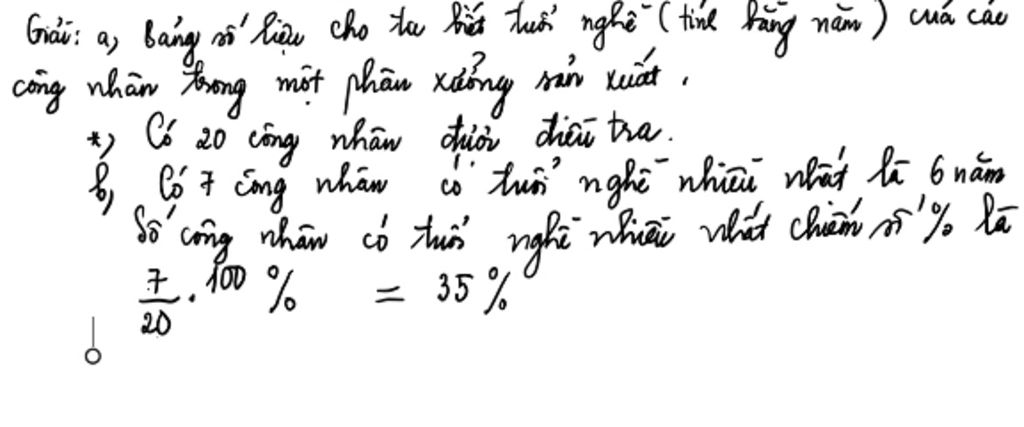 Giải: a, Bảng số liệu cho ta biết tuổi nghề (tính bằng năm) của các
công nhân trong một phân xưởng sản xuất.
*) Có 20 công nhân được điều tra.
b, Có 7 công nhân có tuổi nghề nhiều nhất là 6 năm
Số công nhân có tuổi nghề nhiều nhất chiếm số % là
7/20 . 100 % = 35 %